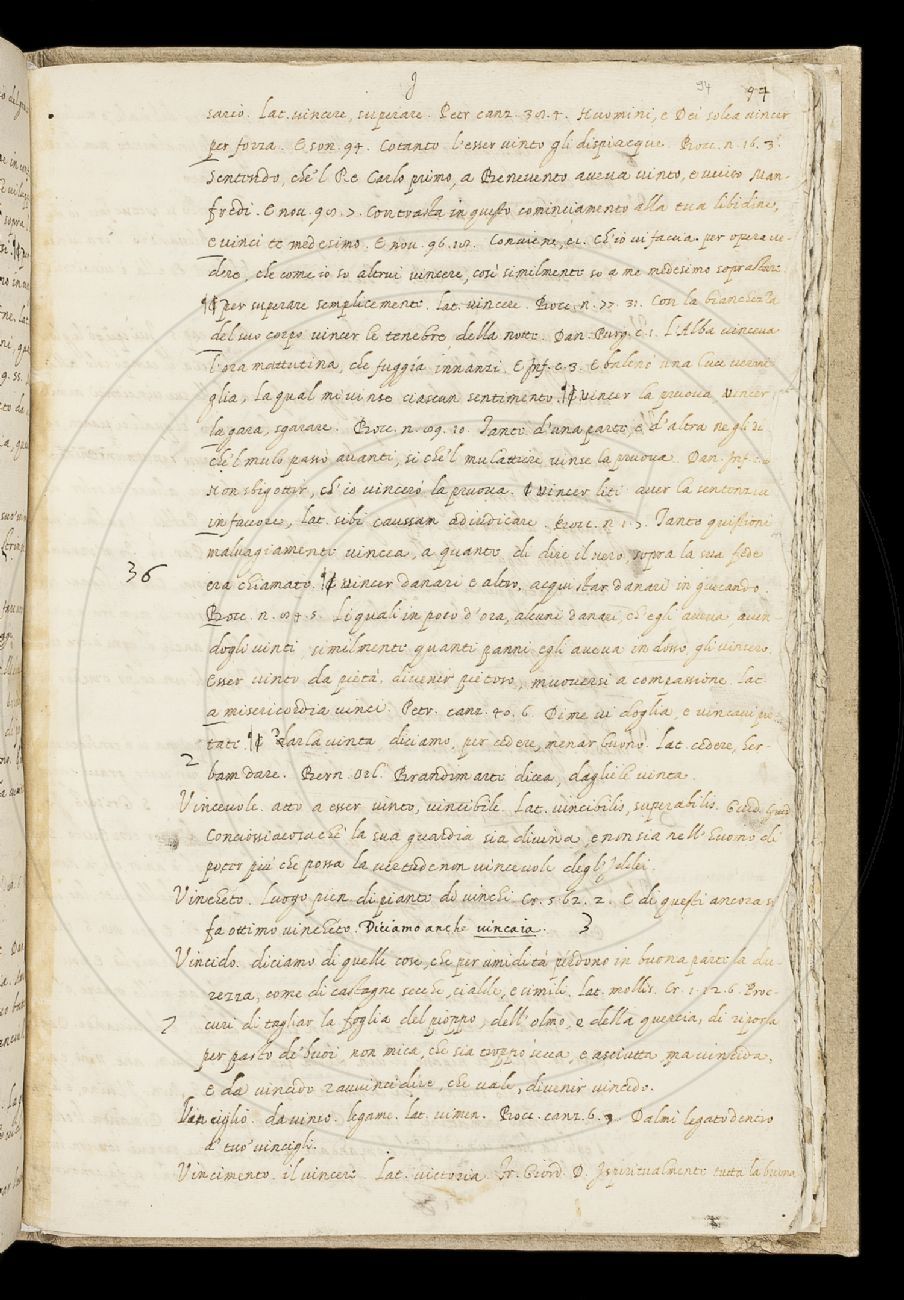 94 97
sario. Lat. vincere, superare. Petr canz. 39. 4. Huomini, e Dei solea vincer
per forza. E son. 94. Cotanto l'esser vinto gli dispiacque. Bocc. n. 16. 3.
Sentendo, che'l Re Carlo primo, a Benevento aveva vinto, e ucciso Man-
fredi. E nov. 99. 7. Contrasta in questo cominciamento alla tua libidine,
e vinci te medesimo. E nov. 96. Conviene, ec. ch'io vi faccia per opera ve-
dere, che come io so altrui vincere, così similmente so a me medesimo soprastare.
¶ per superare semplicemente. lat. vincere. Bocc. n. 77. 31. Con la bianchezza
del suo corpo vincer le tenebre della notte. Dan. Purg. c. 1. L'Alba vinceva
l'ora mattutina, che fuggia innanzi. E Inf. c. 3. E balenò una luce vermi-
glia, La qual mi vinse ciascun sentimento. ¶ vincer la pruova vincer
la gara, sgarare. Bocc. n. 10. Tanto d'una parte, e d'altra
che'l mulo passò avanti, si che'l mulattiere vinse la pruova. Dan. Inf.
Non sbigottir, ch'io vincerò la pruova. ¶ vincer liti aver la sentenzia
in favore, lat. sibi caussam adiudicare. Bocc. n 1. 7. Tante quistioni
malvagiamente vincea, a quante di dire il vero, sopra la sua fede
36
era chiamato. ¶ vincer danari e altro, acquistar danari in giucando.
Bocc. n. 4. 5. Li quali in poco d'ora, alcuni danari, ch'egli aveva aven-
dogli vinti, similmente quanti panni egli aveva in dosso, gli vincero.
Esser vinto da pietà, divenir pietoso, muoversi a compassione. Lat.
a misericordia vinci. Petr. canz. 40. 6. Di me vi doglia, e vincavi pie-
tate ¶ darla vinta, diciamo, per cedere, menar buono. Lat. cedere, her-
2
bam dare. Bern. Orl. Brandimarte dicea, dagliele vinta.
Vincevole. atto a esser vinto, vincibile. Lat. vincibilis, superabilis. Guid.
Conciossiacosa che la sua guardia sia divina, e non sia nell'huomo di
poter più che possa la vertude non vincevole degl'Iddei.
Vincheto. Luogo pien di piante di vinchi. Cr. 5. 62. 2. E di questi ancora si
fa ottimo vincheto. Diciamo anche vincaia. 3
Vincido. diciamo di quelle cose, che per umidità perdono in buona parte la du-
rezza, come di castagne secche, cialde, e simili. Lat. mollis. Cr. 1. 12. 6. Proc-
7
curi di tagliar la foglia del pioppo, dell'olmo, e della quercia, di riporla
per pasto de' buoi, non mica, che sia troppo secca, e asciutta, ma vincida.
E da vincido ravvincidire, che vale, divenir vincido.
Vinciglio. da vinco. legame. lat. vimen. Bocc. canz. 6. 3. Dalmi legato dentro
a' tuo' vincigli.
Vincimento. il vincere. Lat. victoria. Fr. Giord. D. Ispiritualmente tutta la buona